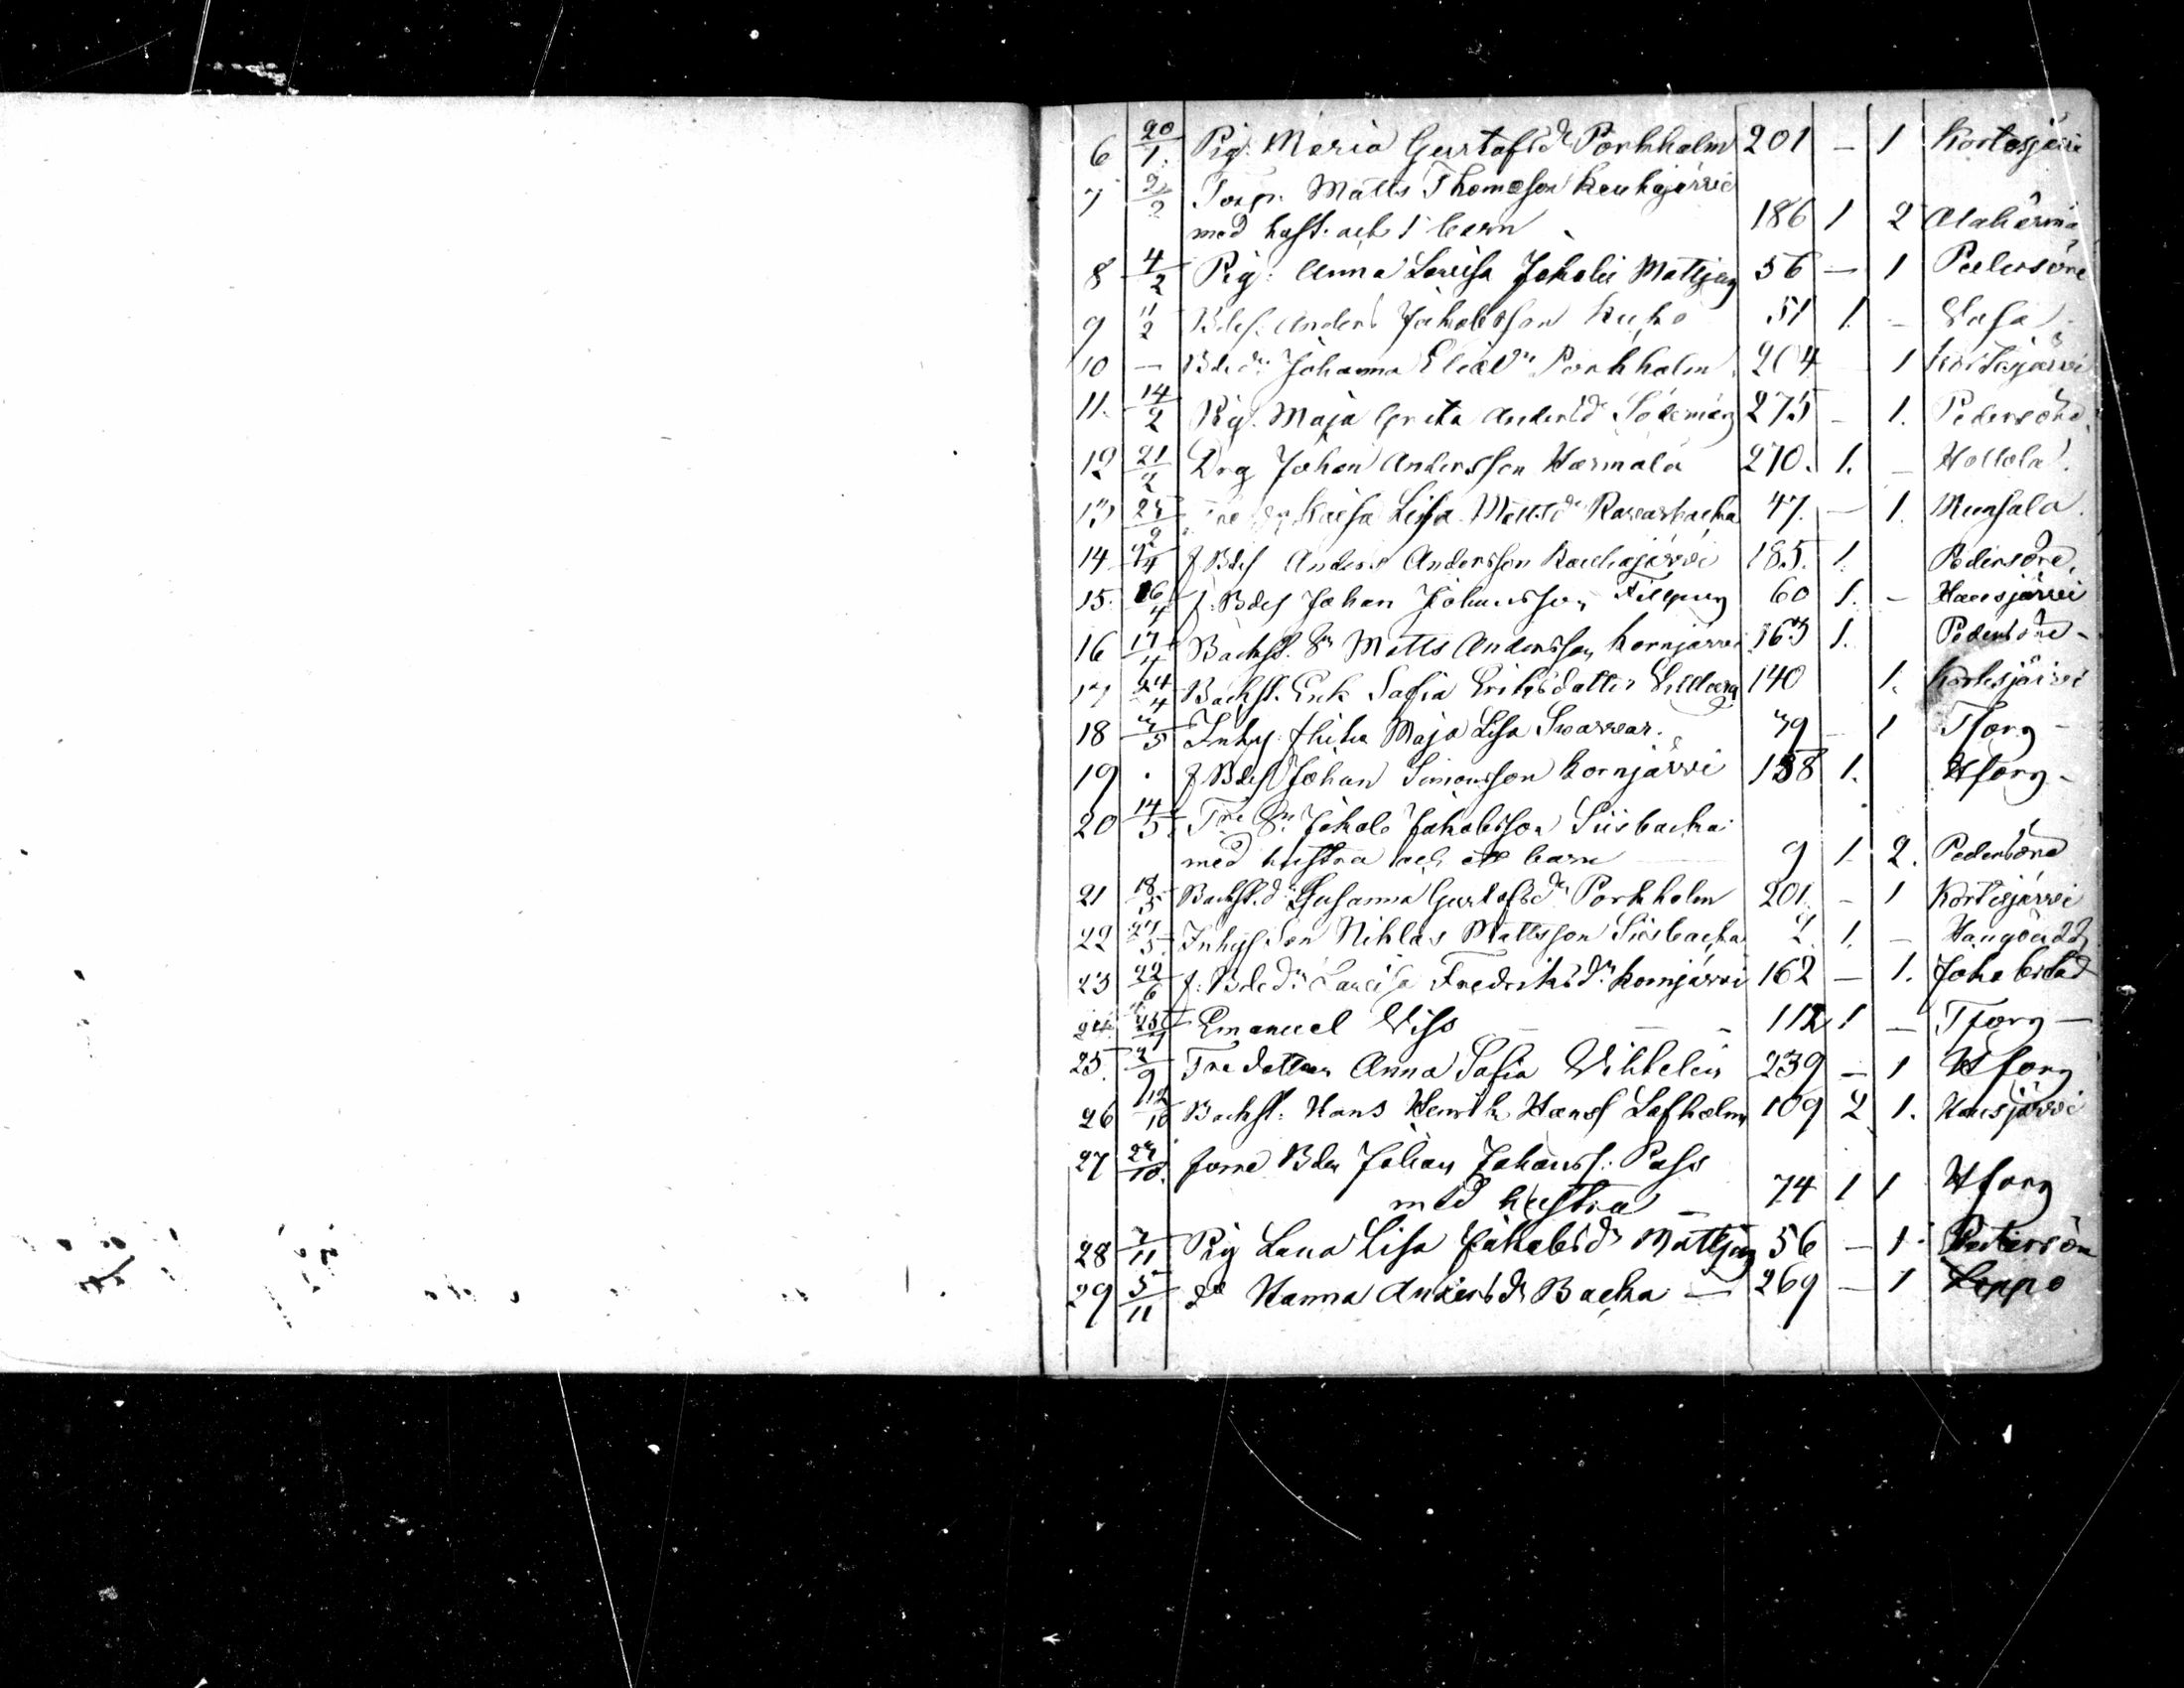 6 20/1 Pig. Maria Gustafsdr Porkholm 201 – 1 Kortesjärvi
7 2/2 Torpr. Matts Thomasson Kauhajärvi
med hust. och 1 barn 186 1 2 Alahärmä
8 4/2 Pig: Anna Lovisa Jakobs Mattjas 56 – 1 Pedersöre
9 11/2 Bdes. Anders Jakobsson Kuko 51 1. – Vasa
10 – Bdedr Johanna Eliædr Porkholm 204 1 Kortesjärvi
11. 14/2 Pig. Maja Greta Andersdr 275 – 1. Pedersöre
12 21/2 Drg Johan Andersson Harmala 270. 1. – Hollola
13 Kaisa Lisa Mattsdr 47. – 1. Munsala.
14 f Bdes Anders Andersson Kauhajärvi 185. 1. Pedersöre.
15. 16/4 f. Bdes Johan Johansson 60 1. – Hausjärvi
16 17/4 Backst. Sn Matts Andersson Kornjärvi 163 1. Pedersöre –
17 24/4 Backst. Enk. Safia Eriksdotter 140 1. Kortesjärvi
18 3/5 Inhy. Maja Lisa Svarvar. 39 – 1 Tforg –
19 . f Bdes Johan Simonsson Kornjärvi 158 1. Hforg –
20 14/5 Jakob Jakobsson Siisbacka
med hustru och ett barn 9 1 2. Pedersöre
21 18/5 Backst. dr Susanna Gustafsdr Porkholm 201. – 1 Kortesjärvi
22 27/5 Inhys Son Niklas Mattsson Siisbacka 2. 1. –
23 22/6 f. Bdedr Lovisa Fredriksdr Kornjärvi 162 – 1. Jakobstad
24 Emanuel Viss – 112 1 – Tforg –
25. 2/9 Anna Safia 239 – 1 Hforg
26 12/10 Backst. Hans Henrik Hanss Lafholm 109 2 1. Hausjärvi
27 27/10. forre Bdn Johan Johanss: Pass
med hustru – 74 1 1 Hforg
28 3/11 Pig Lena Lisa Jakobsdr Mattjas 56 – 1 Pedersöre
29 5/11 Do Hanna Andersdr Backa – 269 – 1 Jeppo